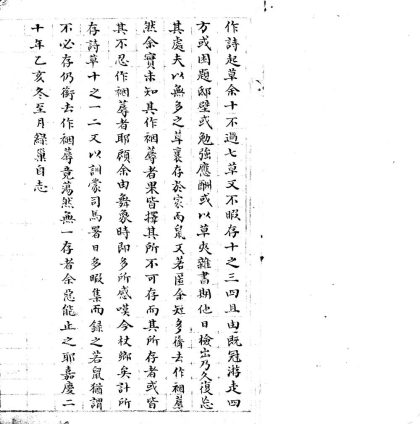 作詩起草余十不過七草又不暇存十之三四且由既冠游走四
方或困題邸壁或勉強應酬或以草夾雜書期他日檢出乃久復忘
其處夫以無多之草囊存於家而鼠又若匿余短多銜去作裀蓐
然余實未知其作裀蓐者果皆擇其所不可存而其所存者或皆
其不忍作裀蓐者耶顧余由舞象時即多所感嘆今杖鄉矣計所
存詩草十之一二又以訓蒙司馬署日多暇集而錄之若鼠猶謂
不必存仍銜去作裀蓐竟蕩然無一存者余惡能止之耶嘉慶二
十年乙亥冬至月綠巢自志